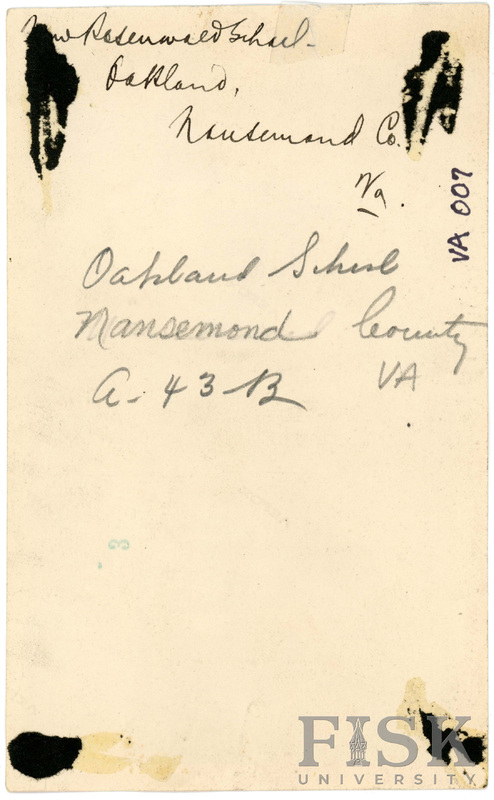 New Rosenwald School -
Oakland,
Nansemond Co.
Va.
VA 007
Oakland School
Nansemond County
A-43-B VA
3
FISK
UNIVERSITY